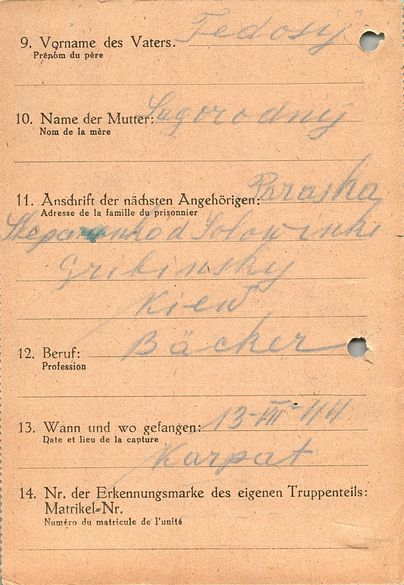 9. Vorname des Vaters. Fedosij
Prénom du père
10. Name der Mutter: Sagorodnij
Nom de la mère
11. Anschrift der nächsten Angehörigen: Paraska
Adresse de la famille du prisonnier
Gribinsky
Kiew
12. Beruf: Bäcker
Profession
13. Wann und wo gefangen: 13-VII-44
Date et lieu de la capture
Karpat
14. Nr. der Erkennungsmarke des eigenen Truppenteils:
Matrikel-Nr.
Numéro du matricule de l'unité